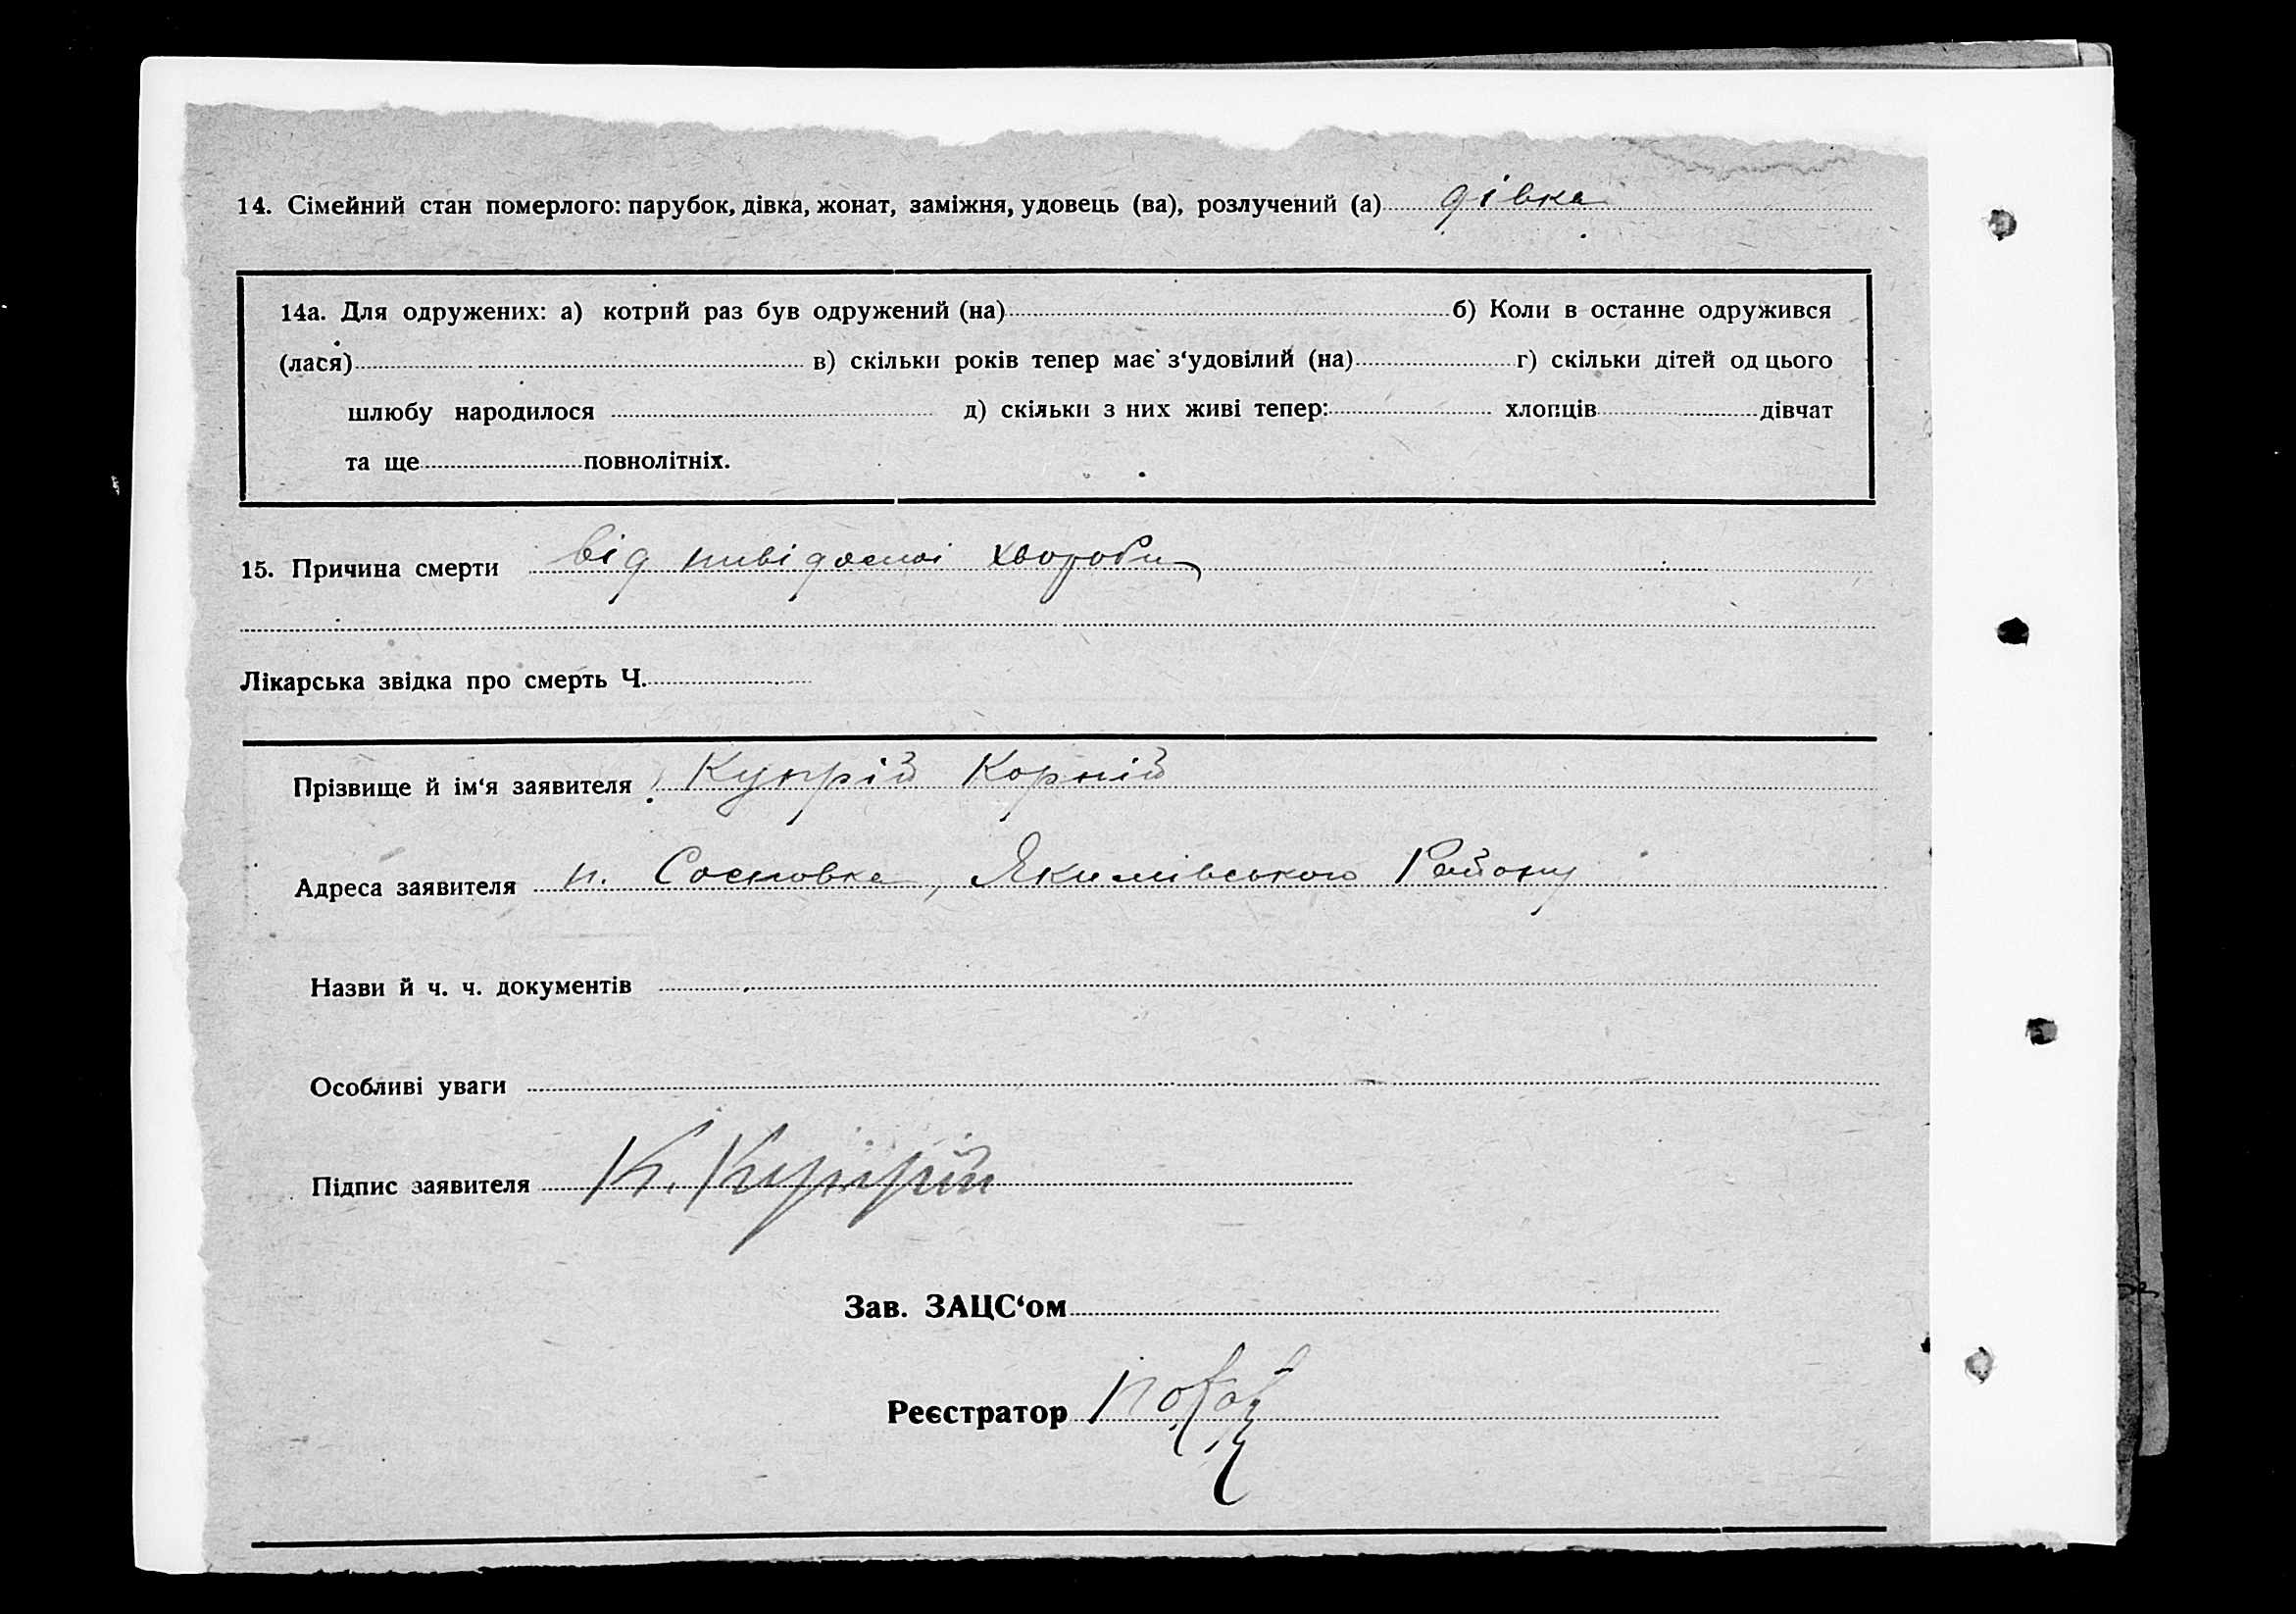 14. Сімейний стан померлого: парубок, дівка, жонат, заміжня, удовець (ва), розлучений (а) дівка
14а. Для одружених: а) котрий раз був одружений (на) б) Коли в останнє одружився
(лася) в) скільки років тепер має з‘удовілий (на) г) скільки дітей од цього
шлюбу народилося д) скільки з них живі тепер: хлопців дівчат
та ще повнолітніх.
15. Причина смерти від невідомої хвороби
Лікарська звідка про смерть Ч.
Прізвище й ім‘я заявителя Купрій Корній
Адреса заявителя п. Сосновка, Якимівського Району
Назви й ч. ч. документів
Особливі уваги
Підпис заявителя К. Купрій
Зав. ЗАЦС‘ом
Реєстратор